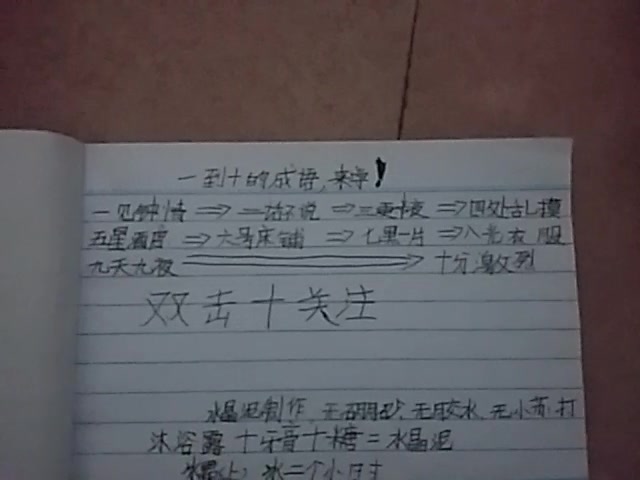 一到十的成语,来学!
一见钟情 => 二话不说 => 三更半夜 => 四处乱摸
五星酒店 => 六号床铺 => 七黑一片 => 八光衣服
九天九夜 => 十分激烈
双击十关注
水晶泥制作,无硼砂,无胶水,无小苏打
沐浴露十牙膏十糖=水晶泥
冰二个小时